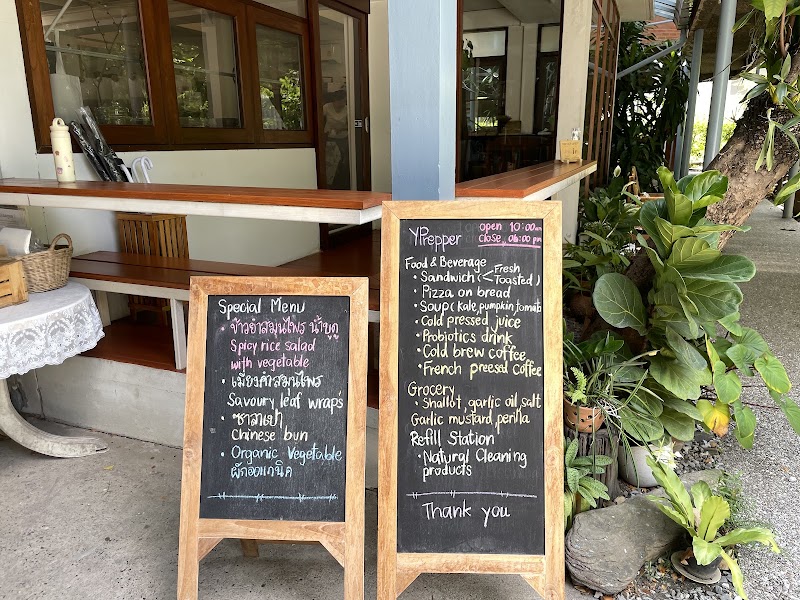 Special Menu
• ข้าวยำสมุนไพร น้ำบูดู
Spicy rice salad
with vegetable
• เมี่ยงคำสมุนไพร
Savoury leaf wraps
• ซาลาเปา
Chinese bun
• Organic Vegetable
ผักออแกนิค
YPrepper
open 10:00am
close 06:00pm
Food & Beverage
• Sandwich (Fresh Toasted)
• Pizza on bread
• Soup (kale, pumpkin, tomato
• Cold pressed juice
• Probiotics drink
• Cold brew coffee
• French preesed coffee
Grocery
• Shallot, garlic oil, salt
Garlic mustard, perilla
Refill Station
• Natural Cleaning
products
Thank you